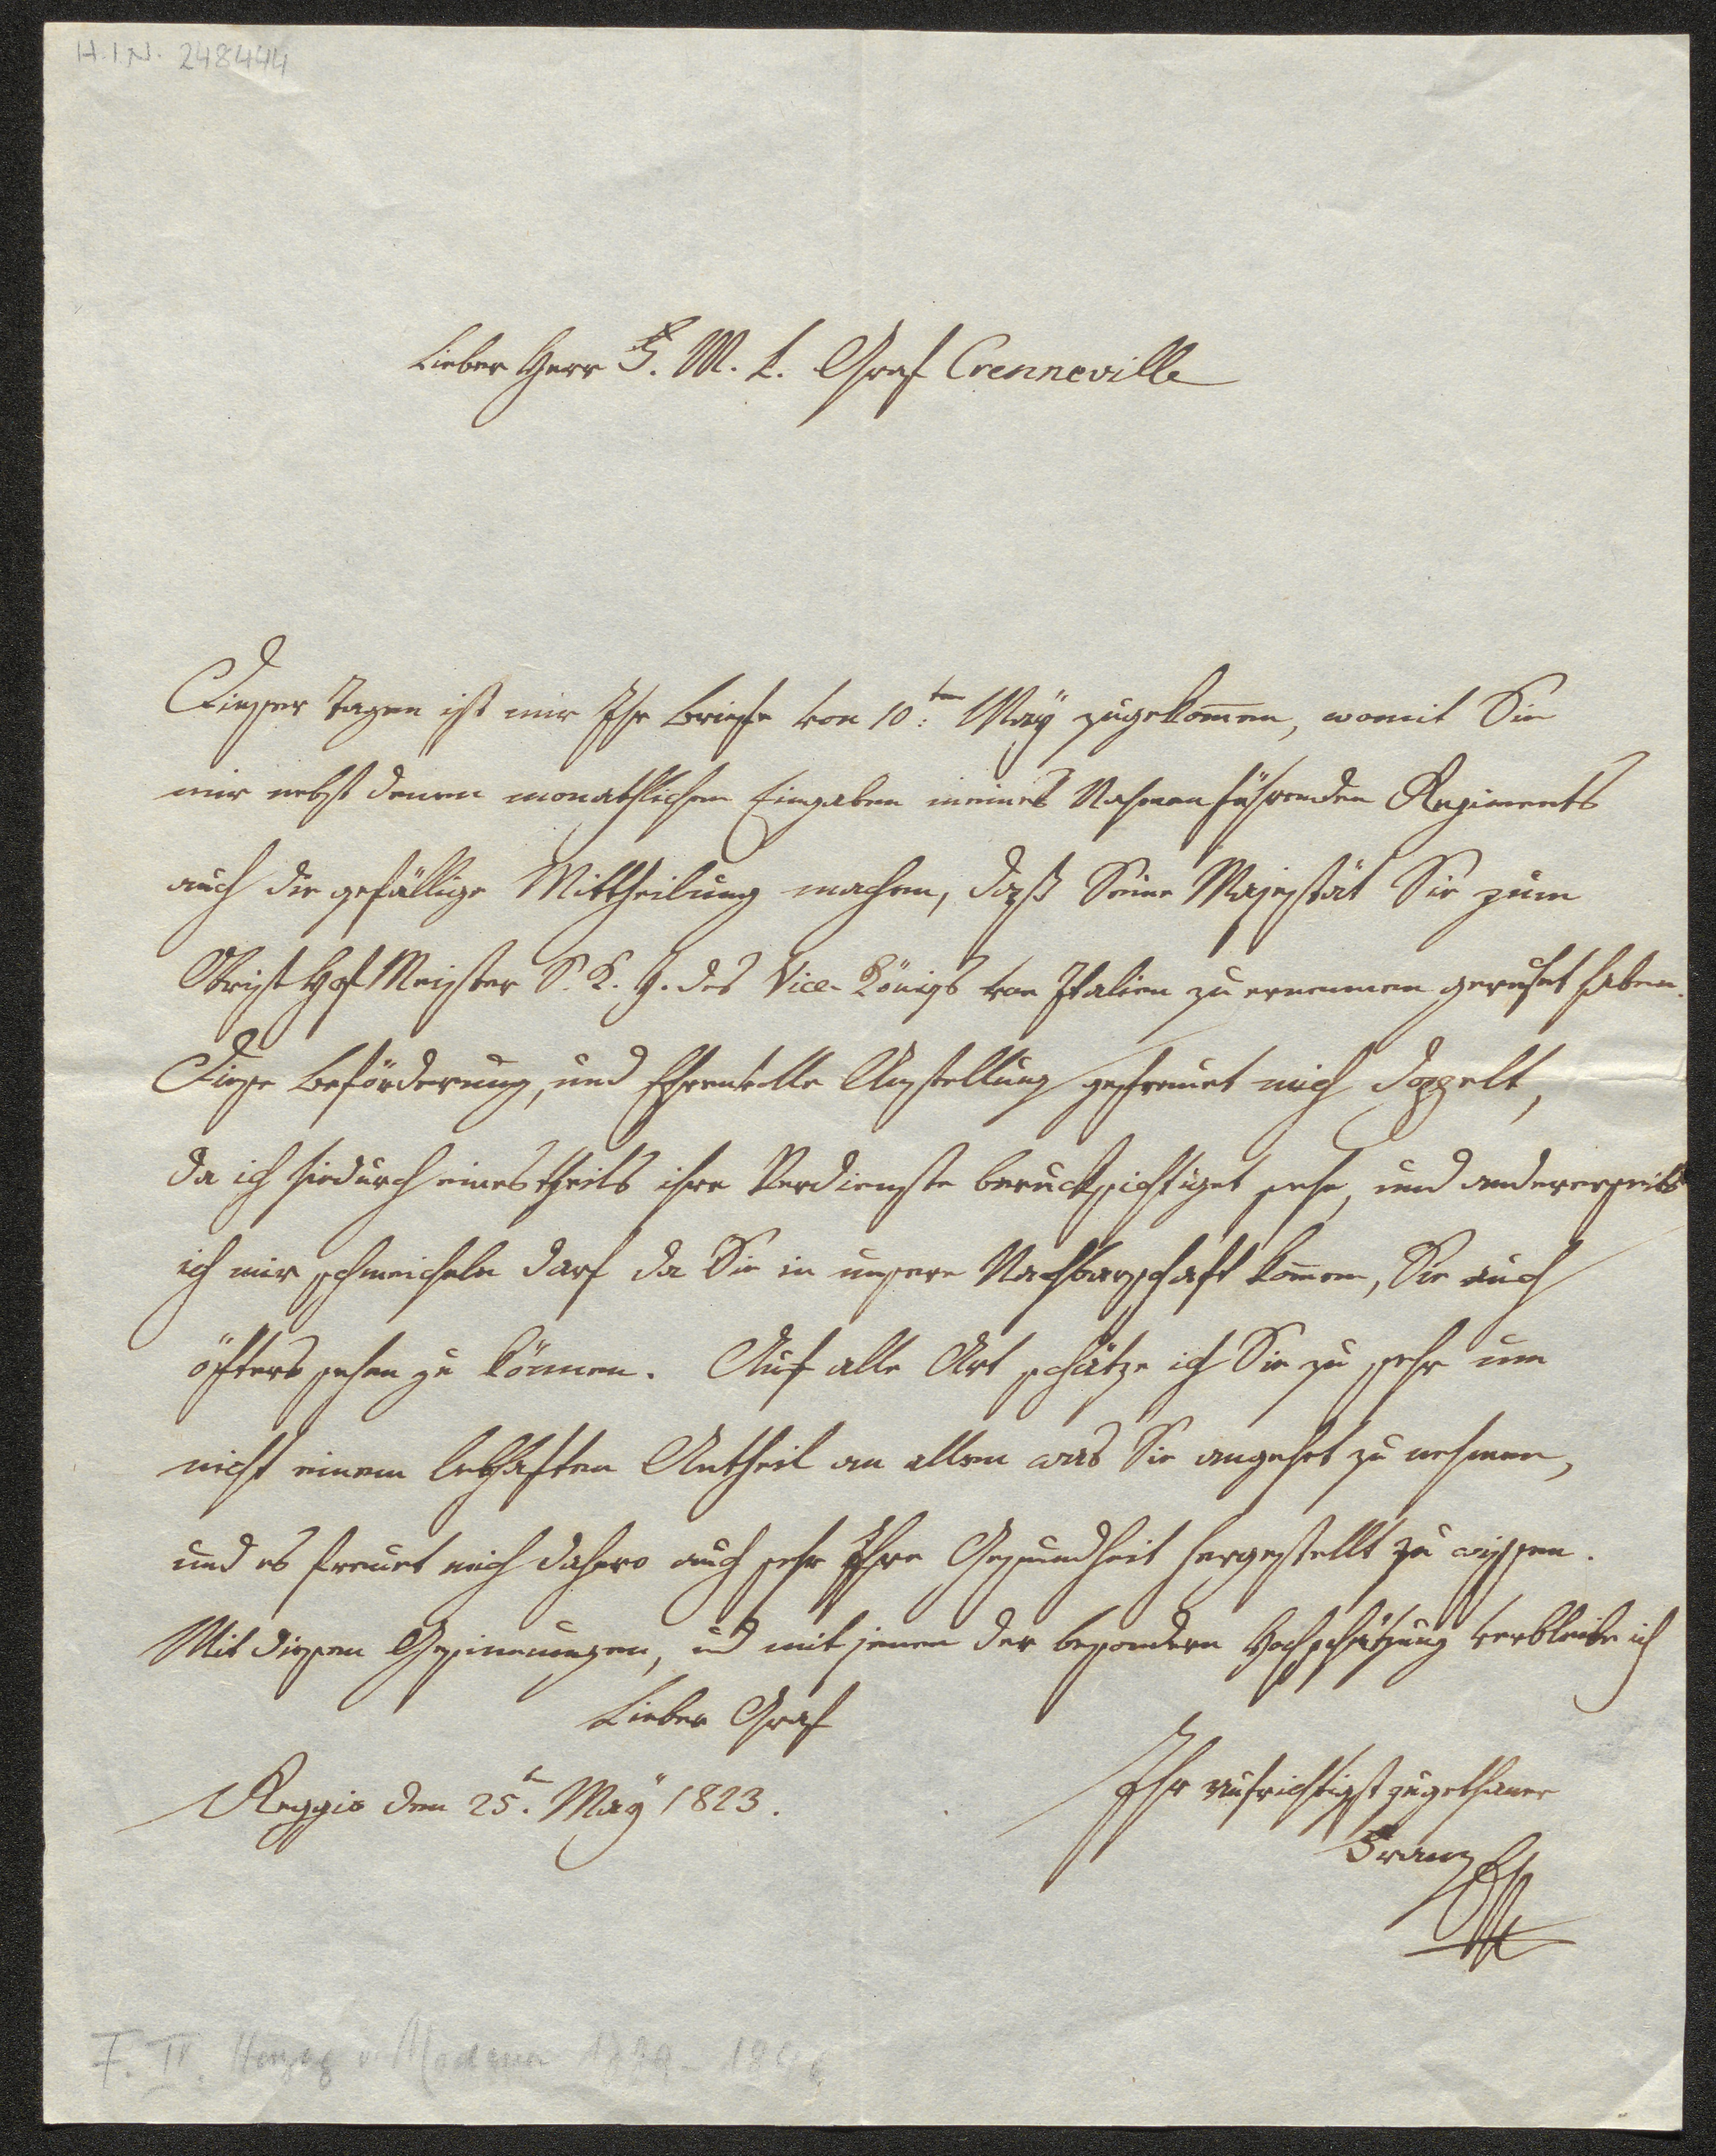 H.I.N. 248444
Lieber Herr F. M. L. Graf Crenneville
Dieser Tagen ist mir Ihr Briefe von 10:ten Maÿ zugekom̅en, womit Sie
mir nebst denen monathlichen Eingaben meines Nahmen führenden Regiments
auch die gefällige Mittheilung machen, daß Seine Majestät Sie zum
Obrist Hof Meister S. K. H. des Vice-Königs von Italien zu ernennen geruhet haben.
Diese Beförderung, und Ehrenvolle Anstellung gefreuet mich doppelt,
da ich hiedurch einestheils ihre Verdienste berucksichtiget sehe, und andererseits
ich mir schmeicheln darf da Sie in unsere Nachbarschaft kom̅en, Sie auch
öfters sehen zu können. Auf alle Art schätze ich Sie zu sehr um
nicht einem lebhaften Antheil an allem was Sie angehet zu nehmen,
und es freuet mich dahero auch sehr Ihre Gesundheit hergestellt zu wissen.
Mit diesen Gesinnungen, und mit jenen der besondern Hochschätzung verbleibe ich
Lieber Graf
Reggio den 25.t Maÿ 1823.
Ihr aufrichtigst zugethaner
Franz
F. IV. Herzog v. Modena 1779-1846